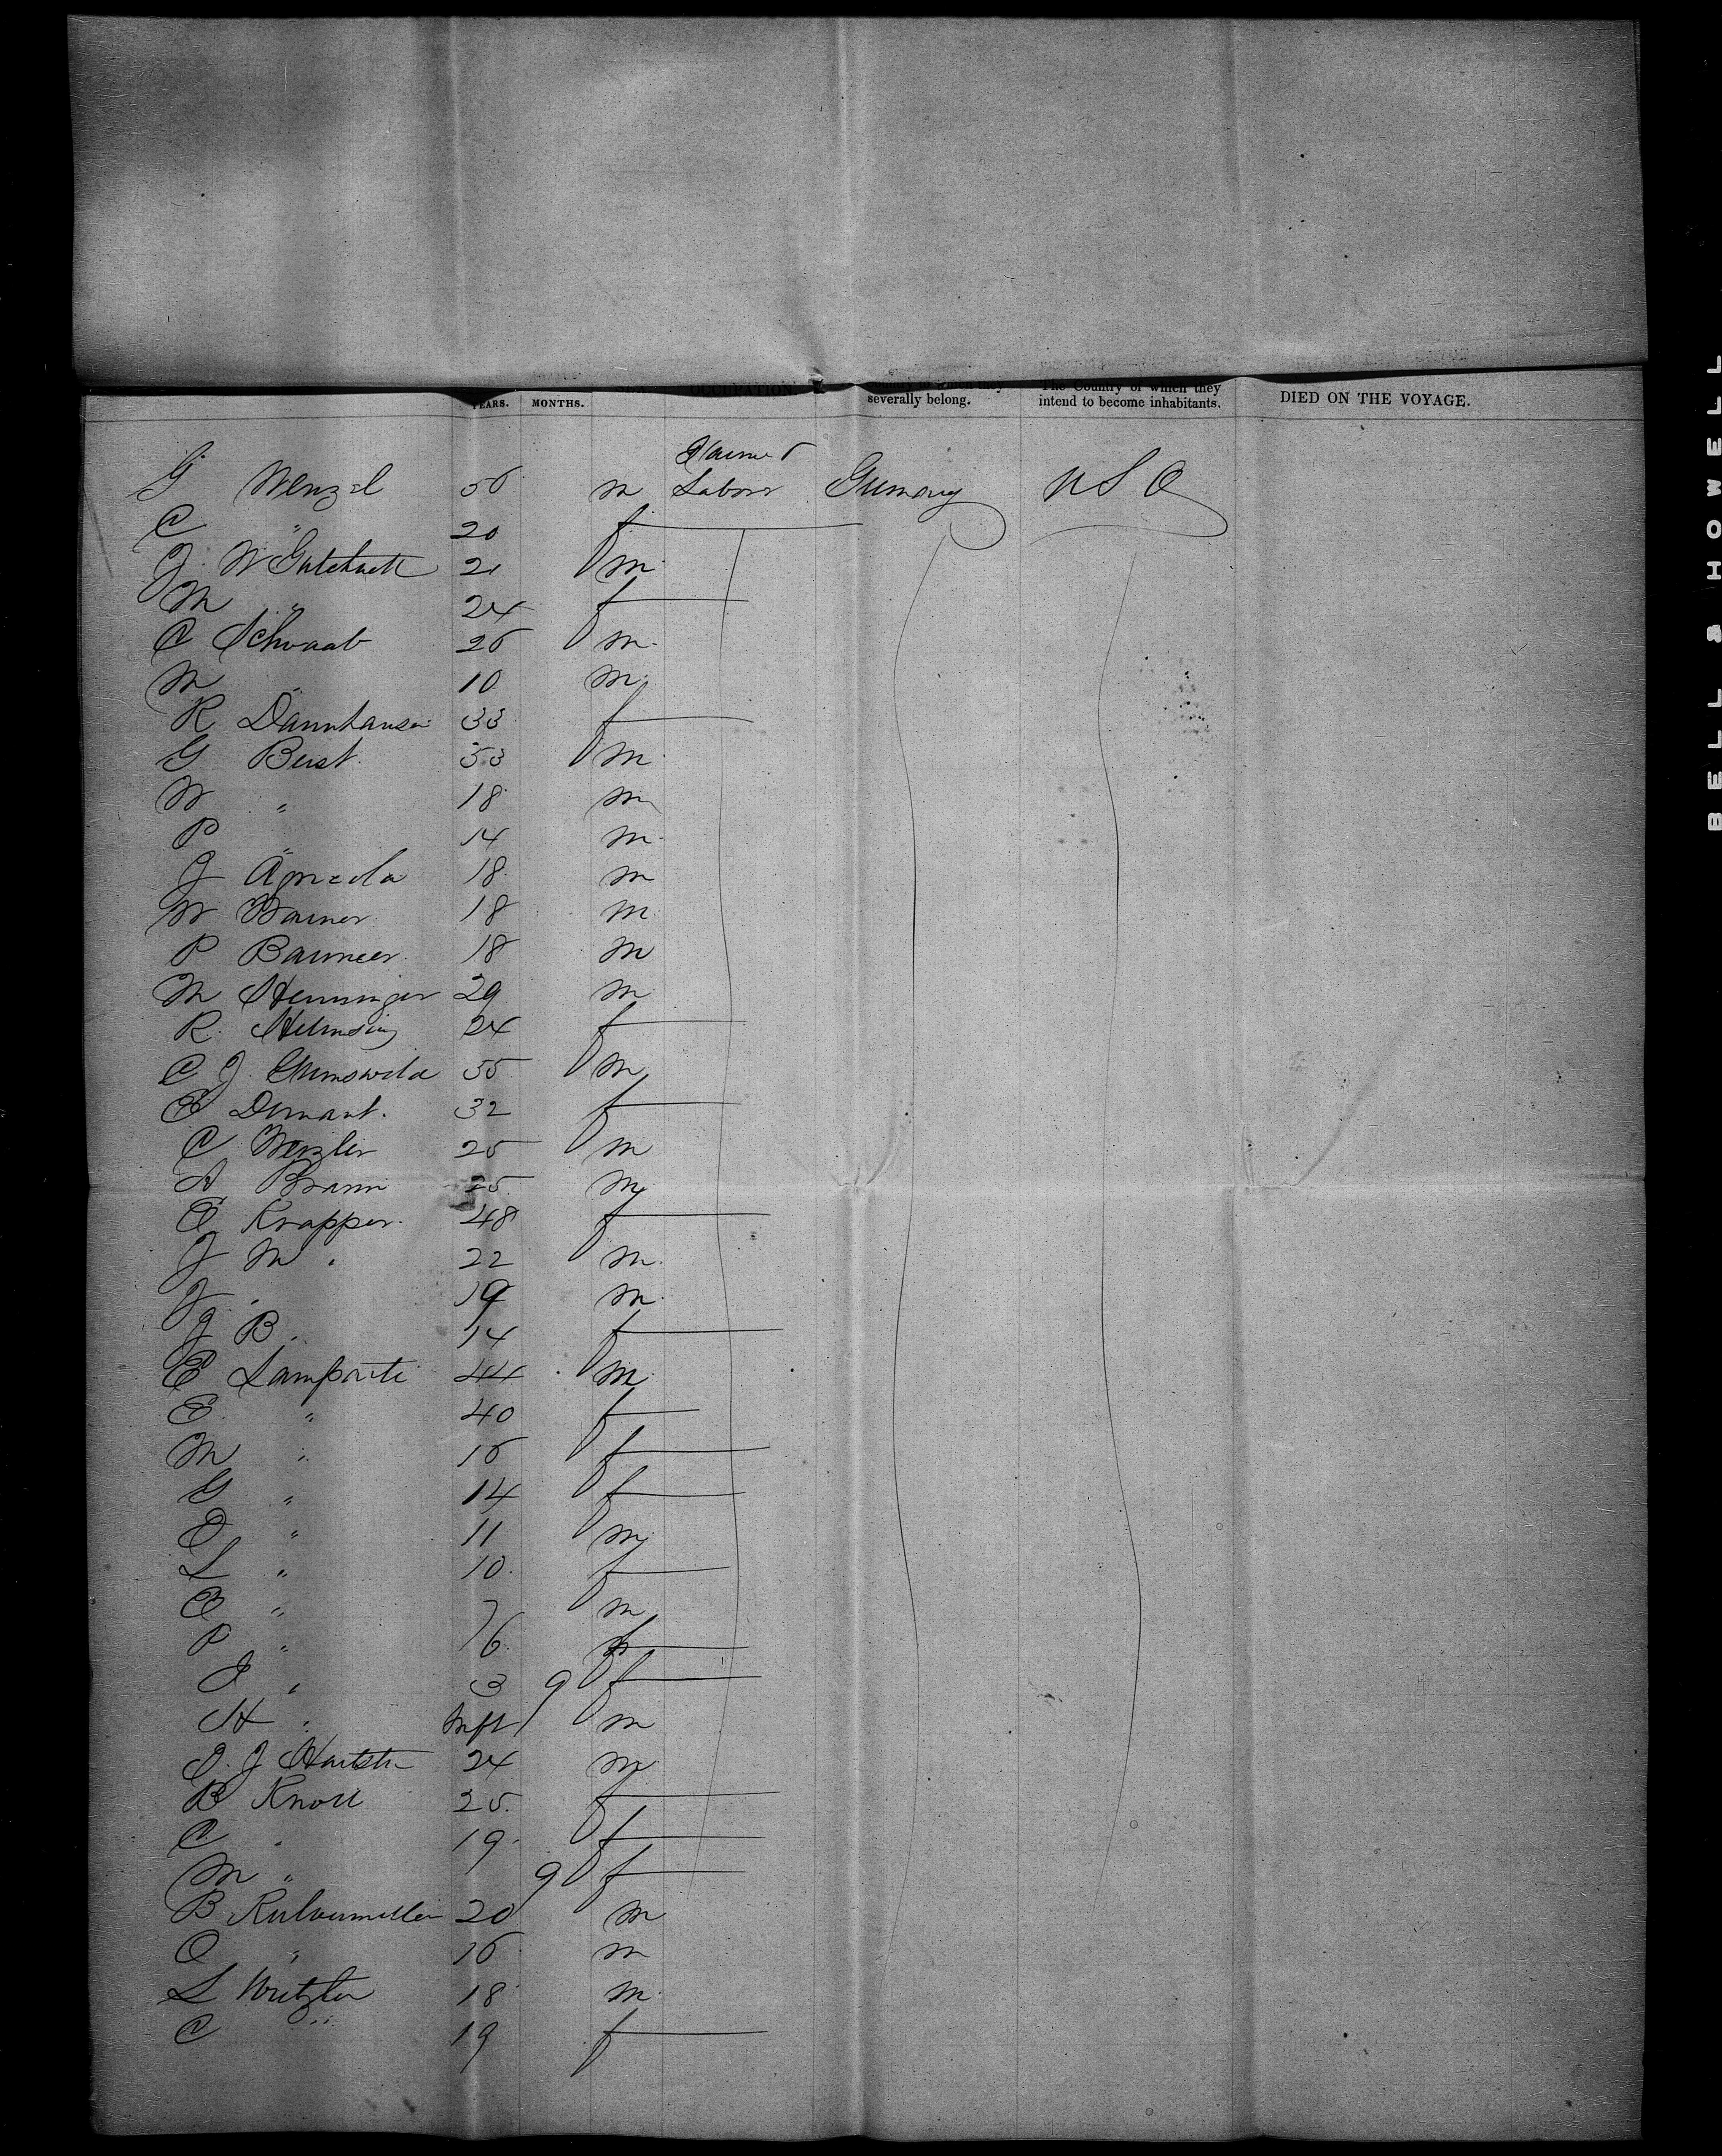 YEARS. MONTHS. OCCUPATION. severally belong. The Country of which they intend to become inhabitants. DIED ON THE VOYAGE.
Farmer
G Wenzel 56 m Labour Germany U S A
C " 20 f
J W Gutchuck 21 m
M " 24 f
C Schwab 26 m
M " 10 m
R Dannhauser 33 f
G Beist 53 m
W " 18 m
P " 14 m
J Agricola 18 m
W Bauner 18 m
P Baumeer 18 m
M Henninger 29 m
R. Helmsing 24 f
C J 55 m
E Demant. 32 f
C Wenzler 25 m
A Braun 25 m
E Knapper 48 f
J M " 22 m
J " 19 m
J B " 14 f
E Lamparti 44 m
E " 40 f
M " 16 f
G " 14 f
O " 11 m
L " 10 f
E " 7 m
P " 6
J " 3 9 f
H " Inft m
J. J 24 m
B Knoll 25 f
C " 19 f
M " 9 f
B 20 m
O " 16 m
L Wetzler 18 m
C " 19 f
BELL & HOWELL